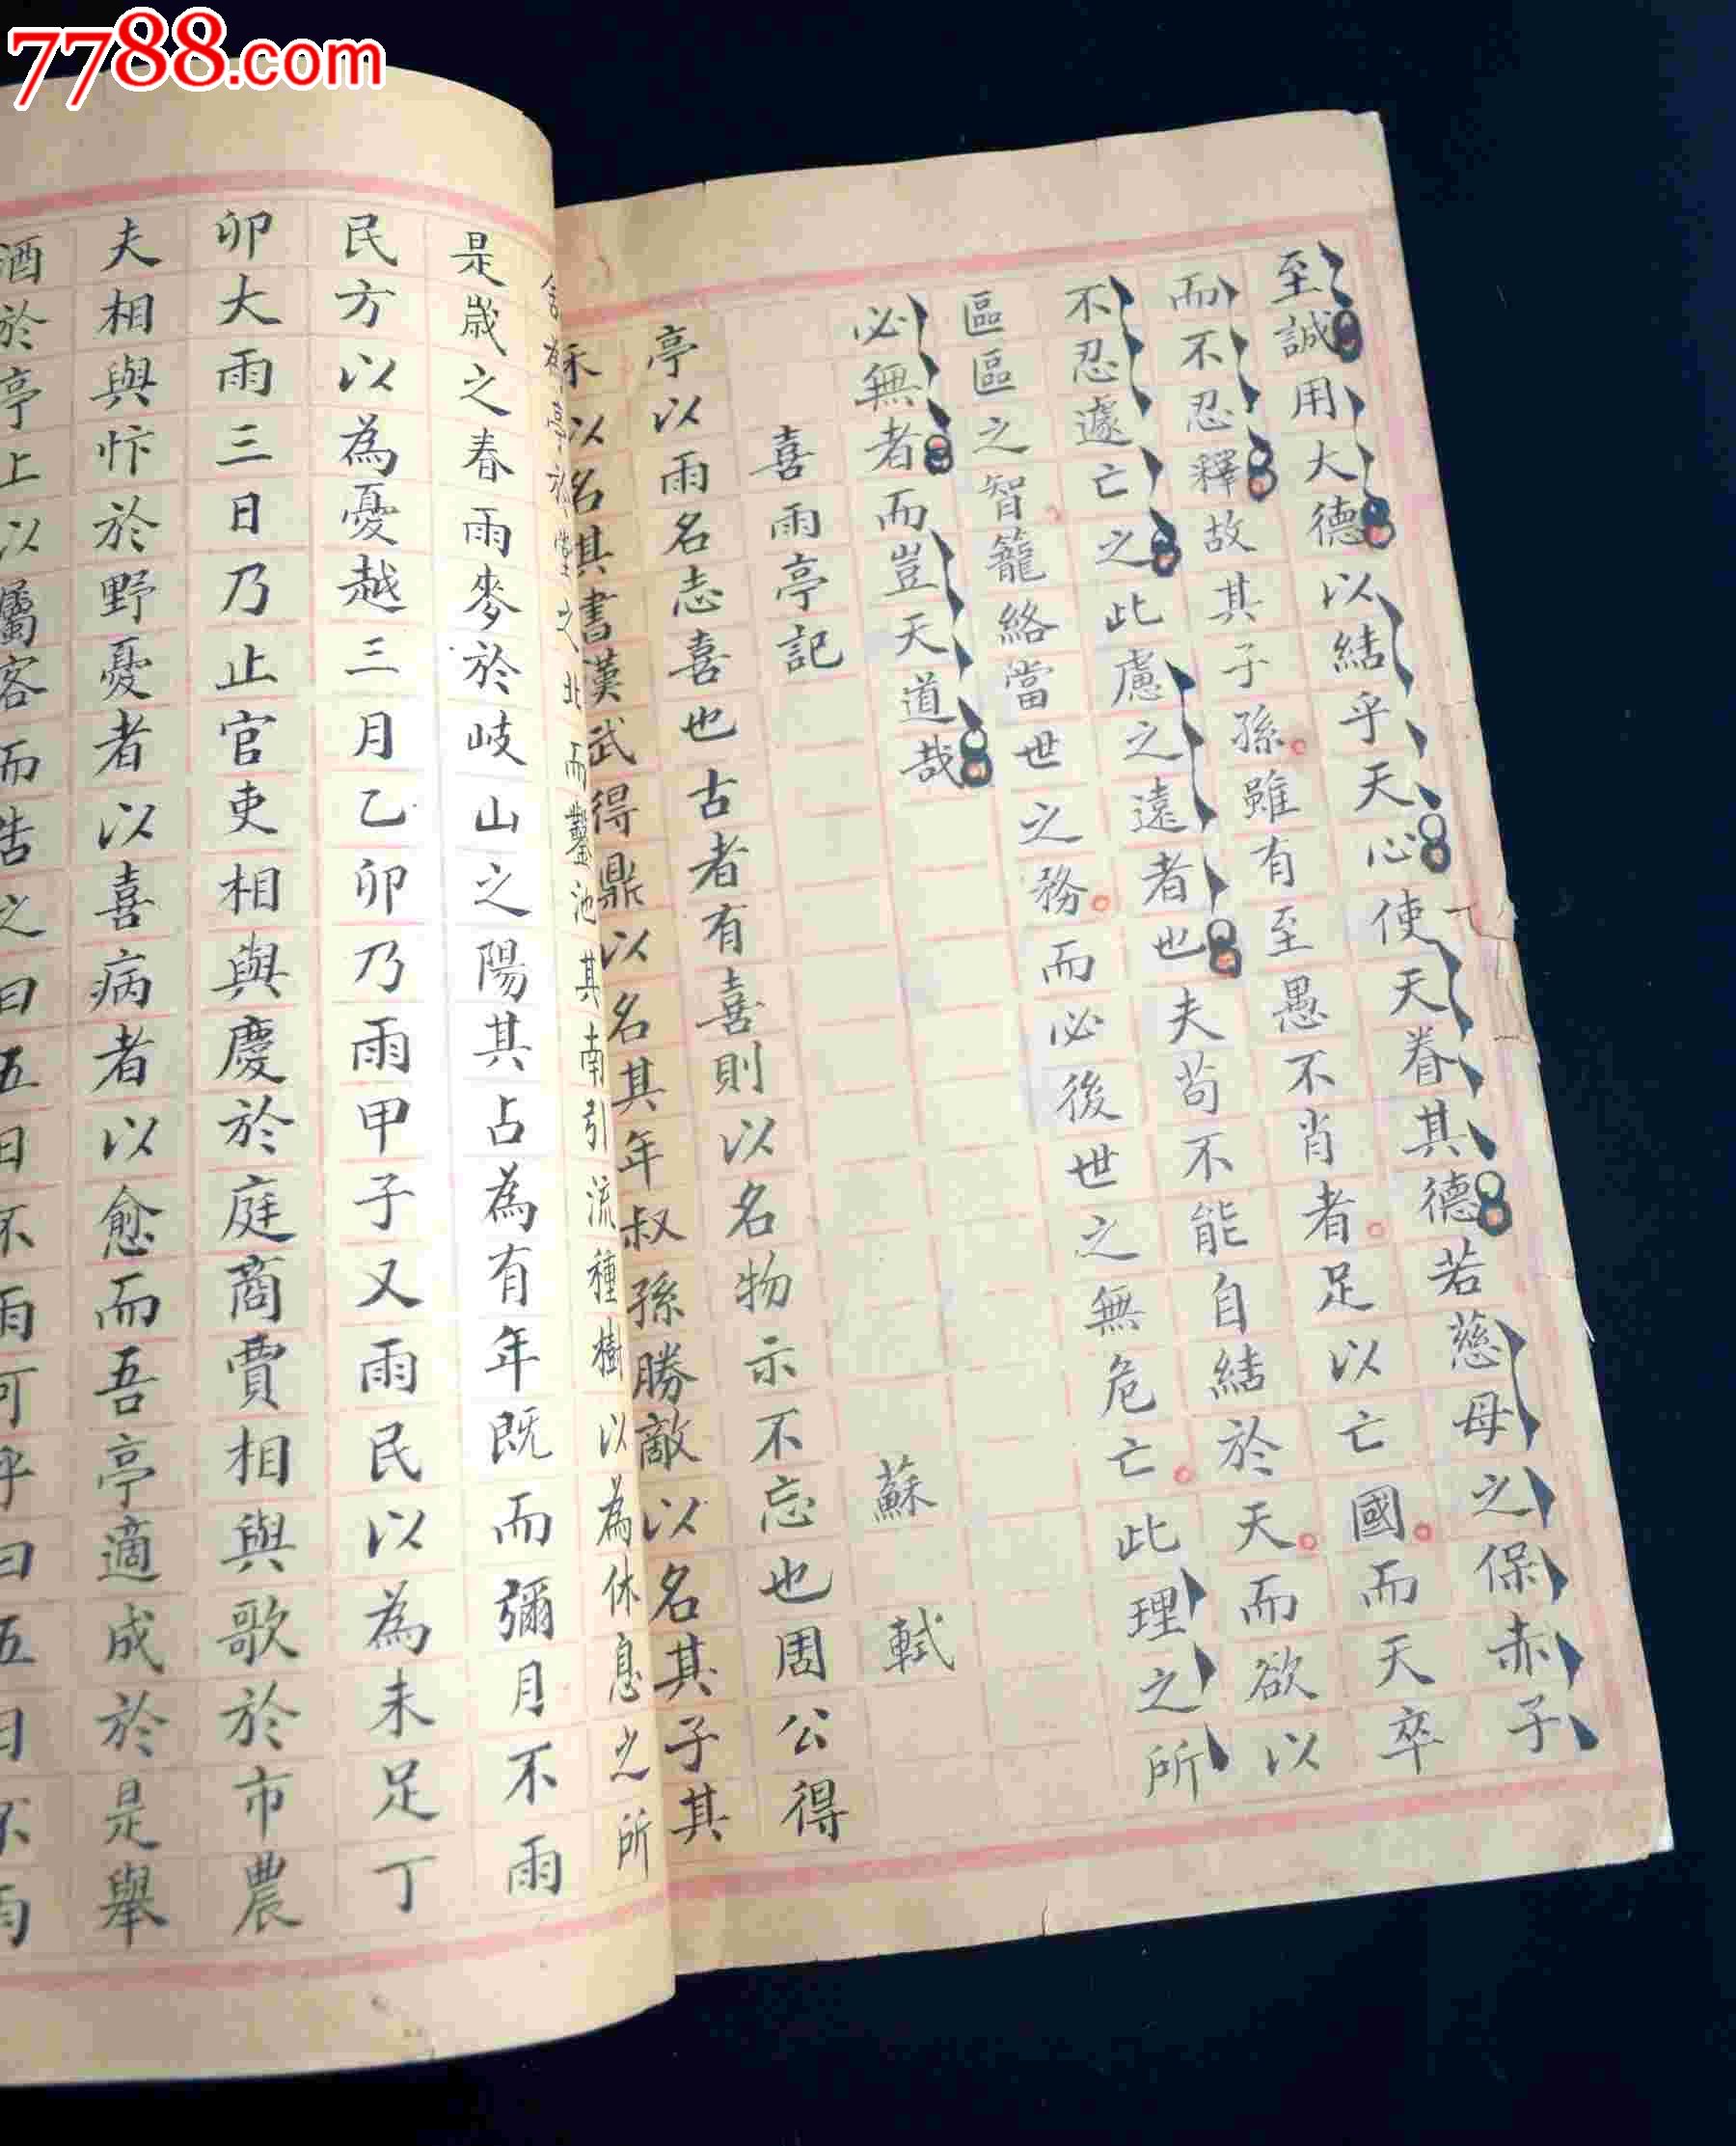 7788.com
至誠用大德以結乎天心使天眷其德若慈母之保赤子
而不忍釋故其子孫。雖有至愚不肖者。足以亡國。而天卒
不忍遽亡之此慮之遠者也夫苟不能自結於天。而欲以
區區之智籠絡當世之務。而必後世之無危亡。此理之所
必無者而豈天道哉
喜雨亭記
蘇軾
亭以雨名志喜也古者有喜則以名物示不忘也周公得
禾以名其書漢武得鼎以名其年叔孫勝敵以名其子其
舍為亭於堂之北而鑿池其南引流種樹以為休息之所
是歲之春雨麥於岐山之陽其占為有年既而彌月不雨
民方以為憂越三月乙卯乃雨甲子又雨民以為未足丁
卯大雨三日乃止官吏相與慶於庭商賈相與歌於市農
夫相與忭於野憂者以喜病者以愈而吾亭適成於是舉
酒於亭上以屬客而告之曰五日不雨可乎曰五日不雨